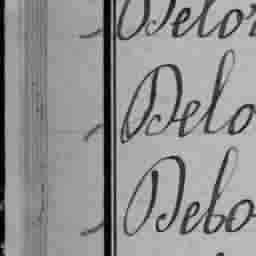 Delor
Delo
Debo